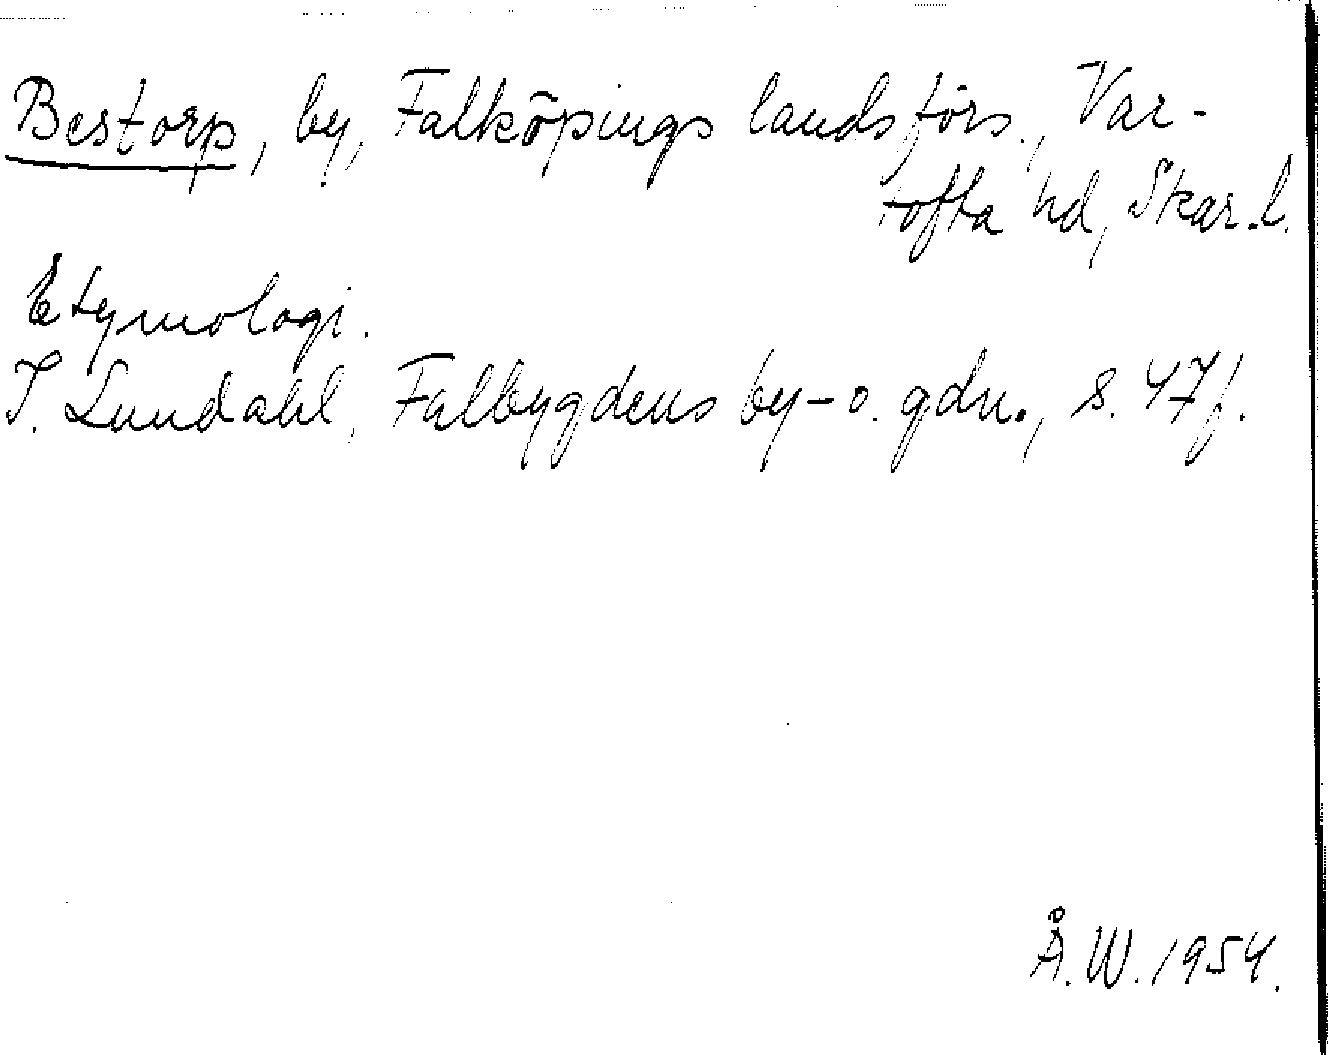 Bestorp, by, Falköpings landsförs., Var-
tofta hd, Skar. l.
Etymologi.
I. Lundahl, Falbygdens by- o. gdn., s. 47 f.
Å. W. 1954.